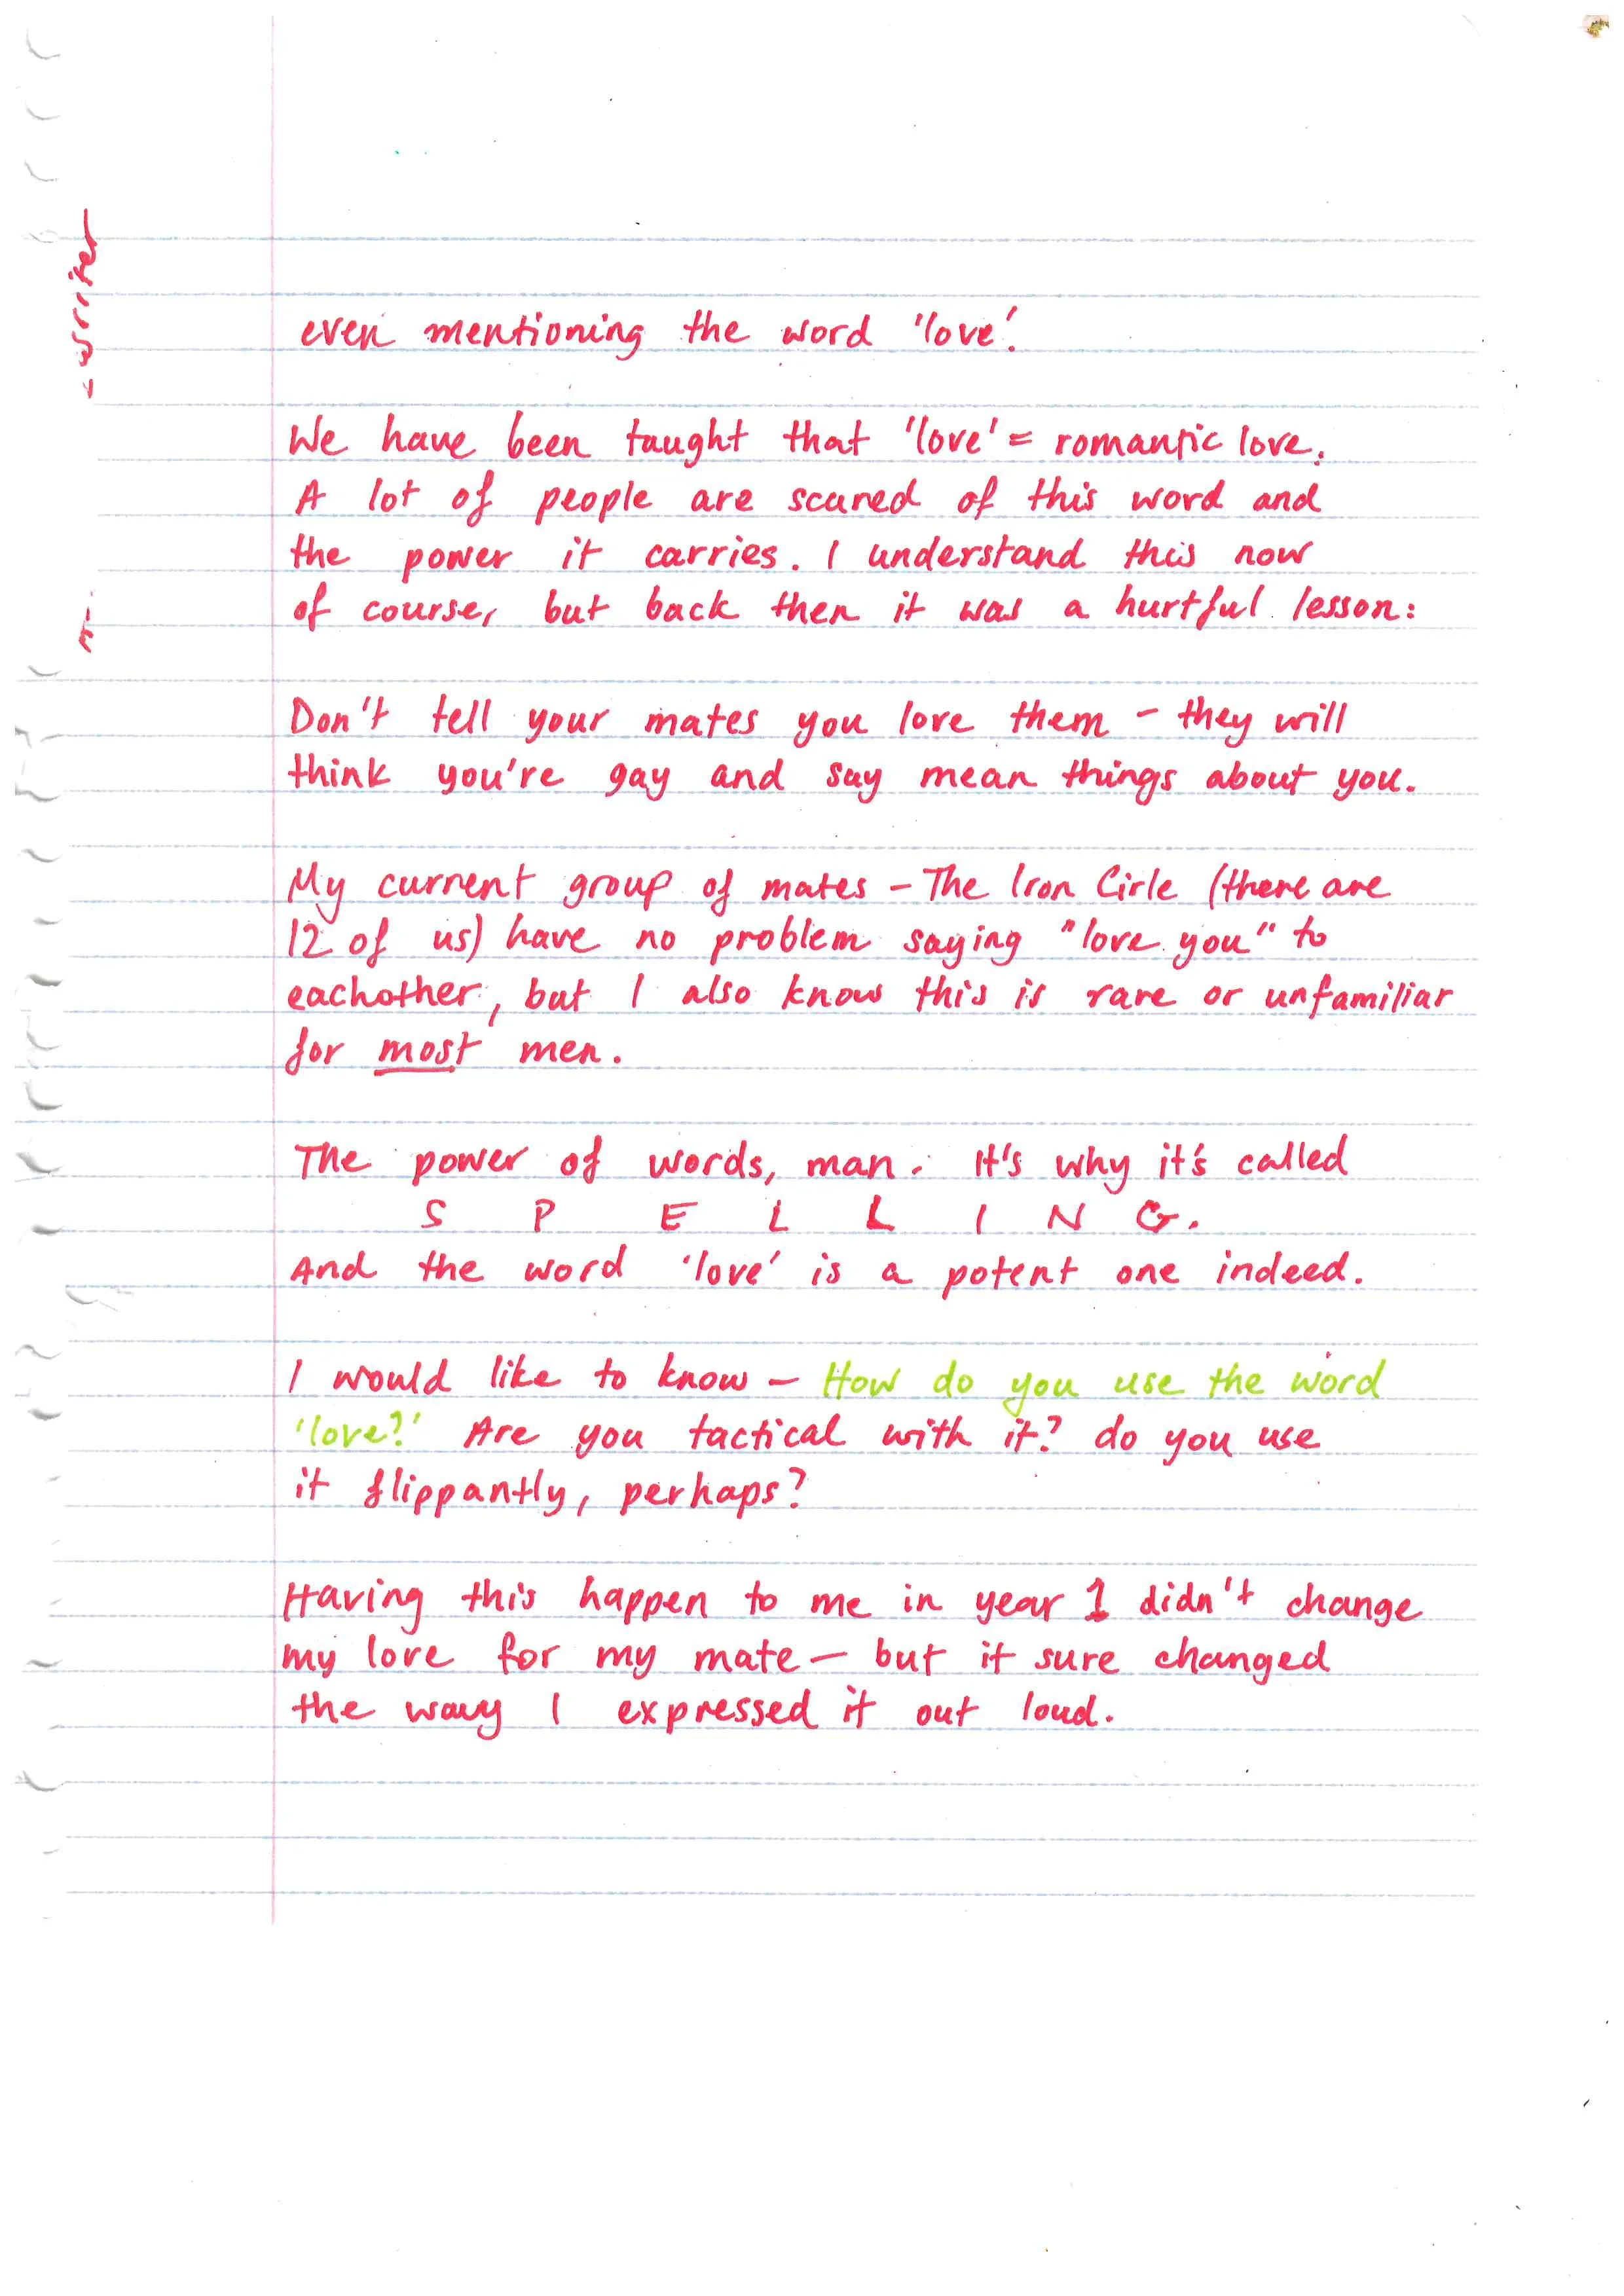 even mentioning the word 'love'.
We have been taught that 'love' = romantic love.
A lot of people are scared of this word and
the power it carries. I understand this now
of course, but back then it was a hurtful lesson:
Don't tell your mates you love them - they will
think you're gay and say mean things about you.
My current group of mates - The Iron Cirle (there are
12 of us) have no problem saying "love you" to
eachother, but I also know this is rare or unfamiliar
for most men.
The power of words, man. It's why it's called
S P E L L I N G.
And the word 'love' is a potent one indeed.
I would like to know - How do you use the word
'love?' Are you tactical with it? do you use
it flippantly, perhaps?
Having this happen to me in year 1 didn't change
my love for my mate - but it sure changed
the way I expressed it out loud.